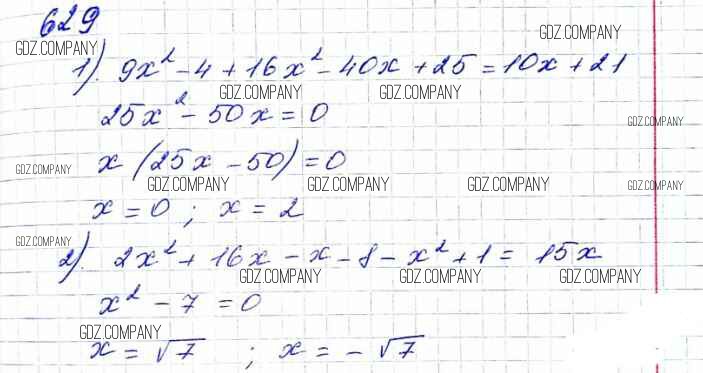 629
GDZ.COMPANY GDZ.COMPANY
1). 9x² - 4 + 16x² - 40x + 25 = 10x + 21
GDZ.COMPANY GDZ.COMPANY
25x² - 50x = 0
GDZ.COMPANY
x (25x - 50) = 0
GDZ.COMPANY
GDZ.COMPANY GDZ.COMPANY GDZ.COMPANY GDZ.COMPANY
x = 0 ; x = 2
GDZ.COMPANY
2). 2x² + 16x - x - 8 - x² + 1 = 15x
GDZ.COMPANY GDZ.COMPANY GDZ.COMPANY
x² - 7 = 0
GDZ.COMPANY
x = √7 ; x = - √7